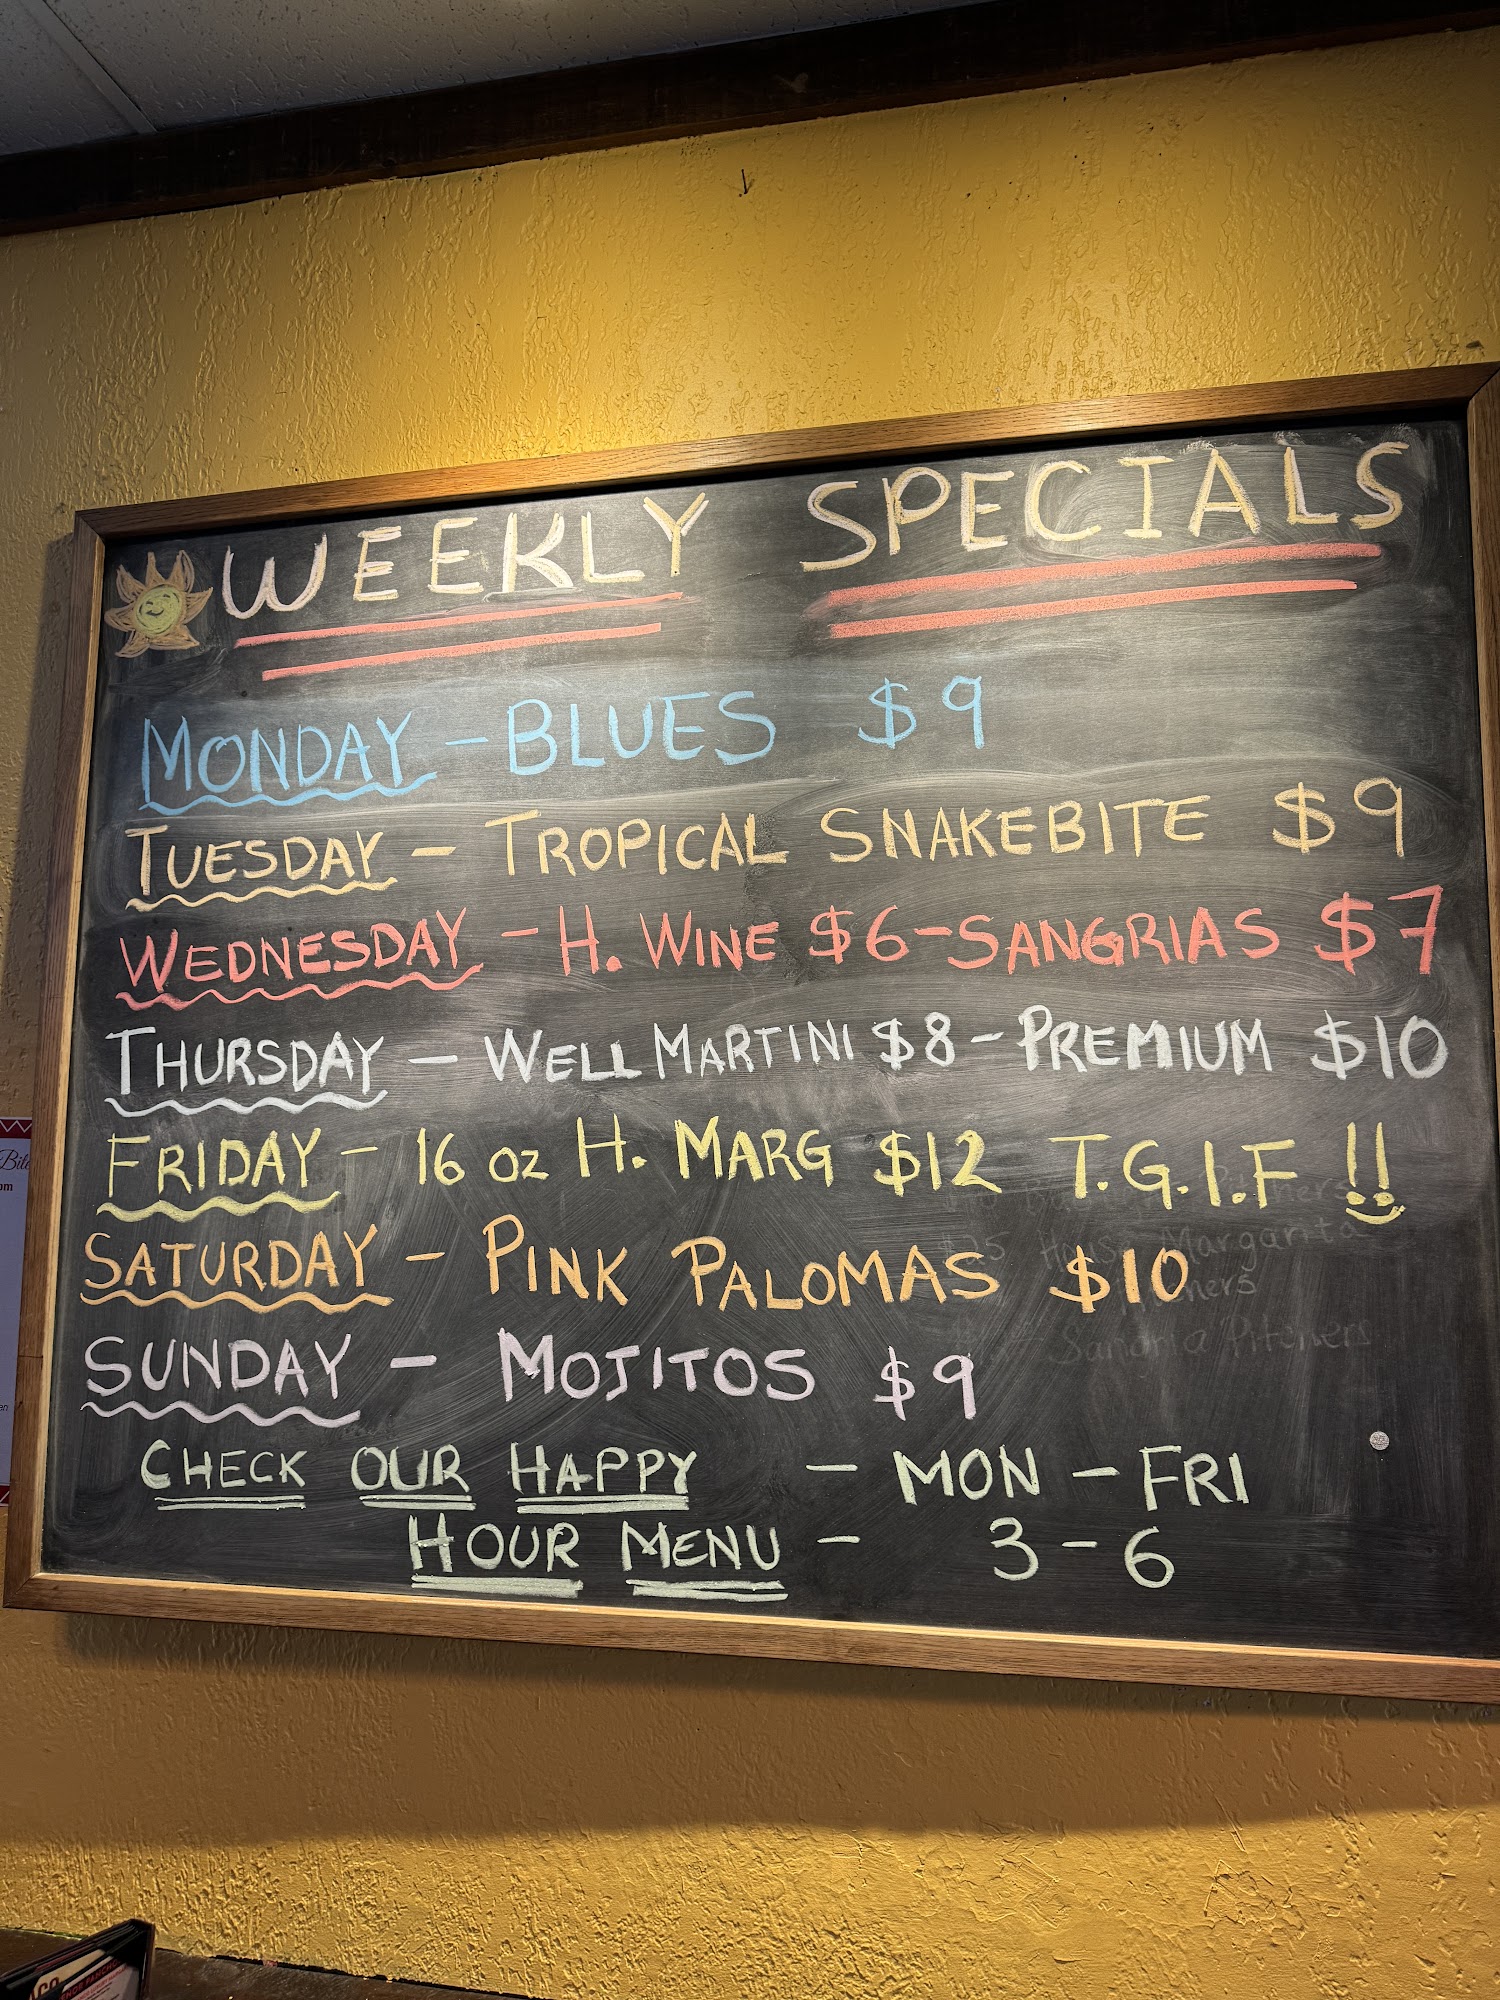 WEEKLY SPECIALS
MONDAY - BLUES $9
TUESDAY - TROPICAL SNAKEBITE $9
WEDNESDAY - H. WINE $6 - SANGRIAS $7
THURSDAY - WELL MARTINI $8 - PREMIUM $10
FRIDAY - 16 oz H. MARG $12 T.G.I.F !!
House Margarita
SATURDAY - PINK PALOMAS $10
Sangria Pitchers
SUNDAY - MOJITOS $9
CHECK OUR HAPPY - MON - FRI
HOUR MENU - 3 - 6